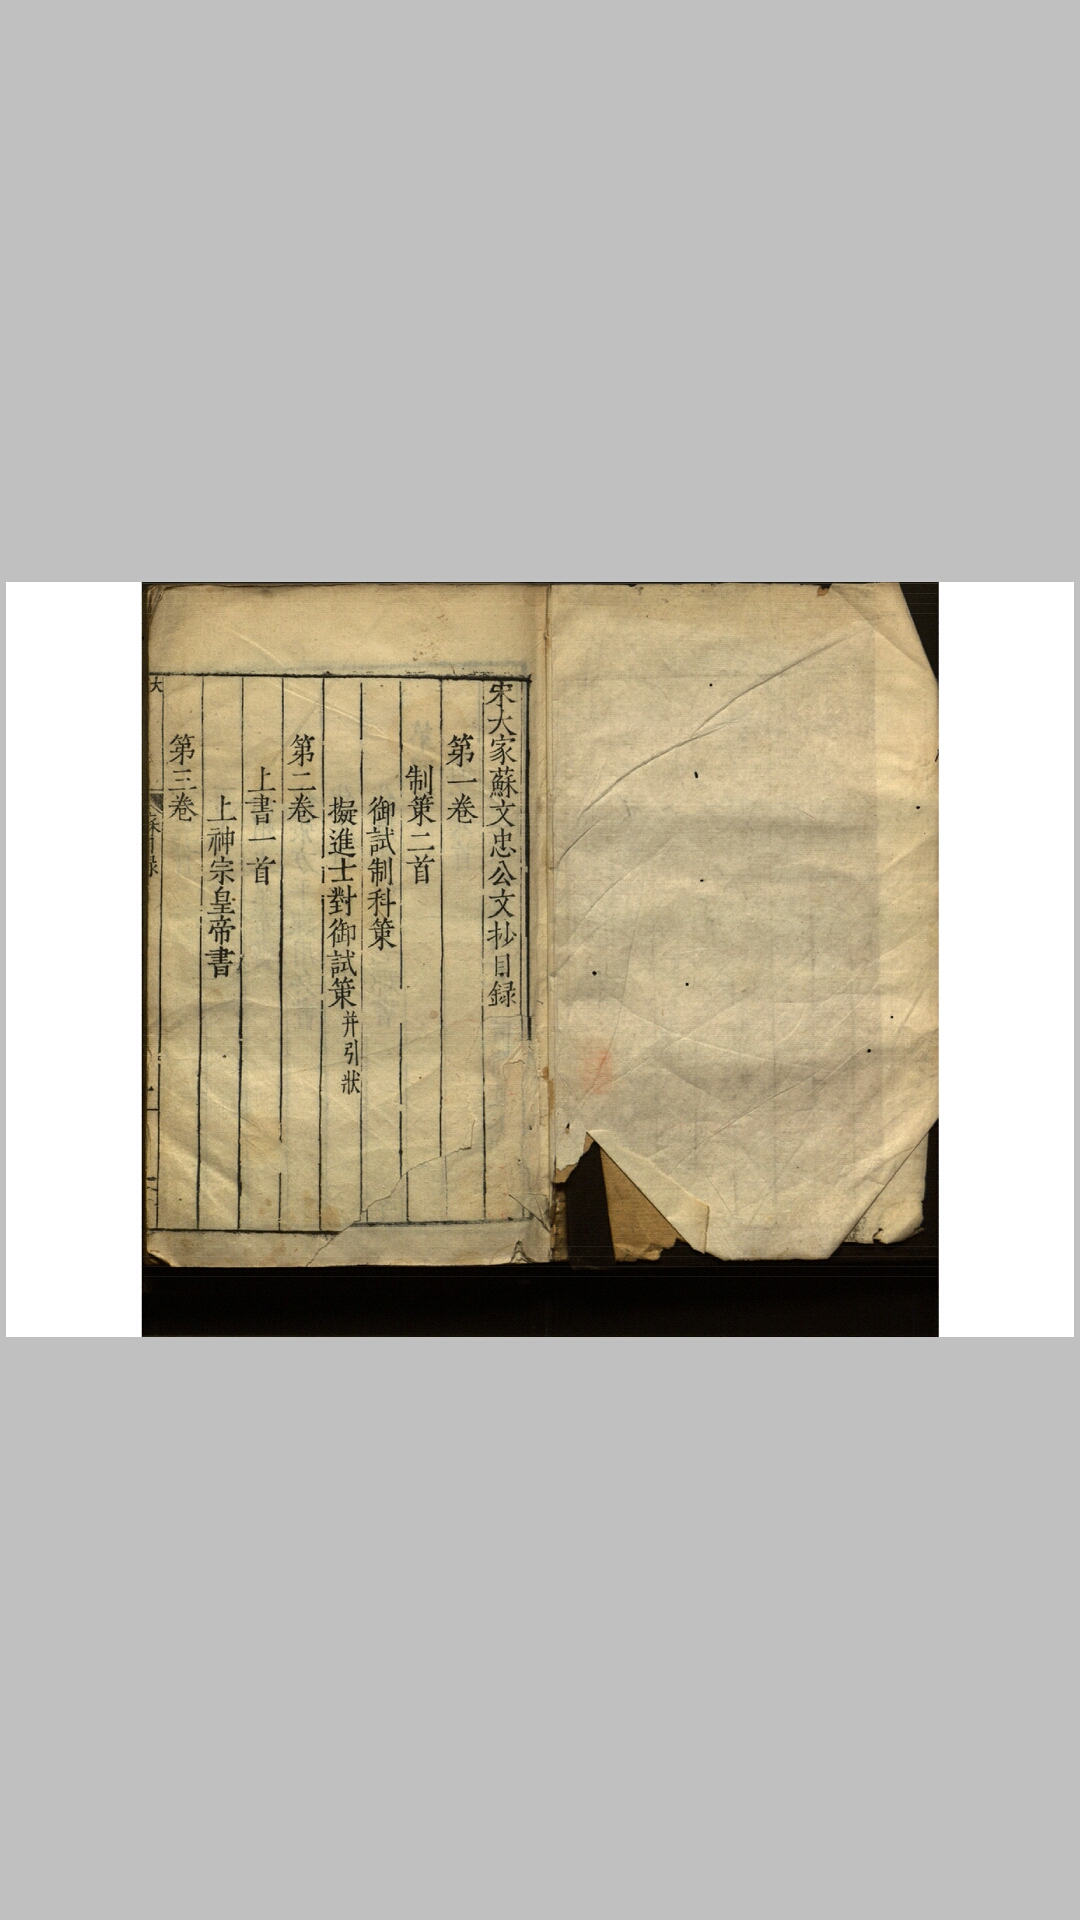 宋大家蘇文忠公文抄目録
第一卷
制策二首
御試制科策
擬進士對御試策并引狀
第二卷
上書一首
上神宗皇帝書
第三卷